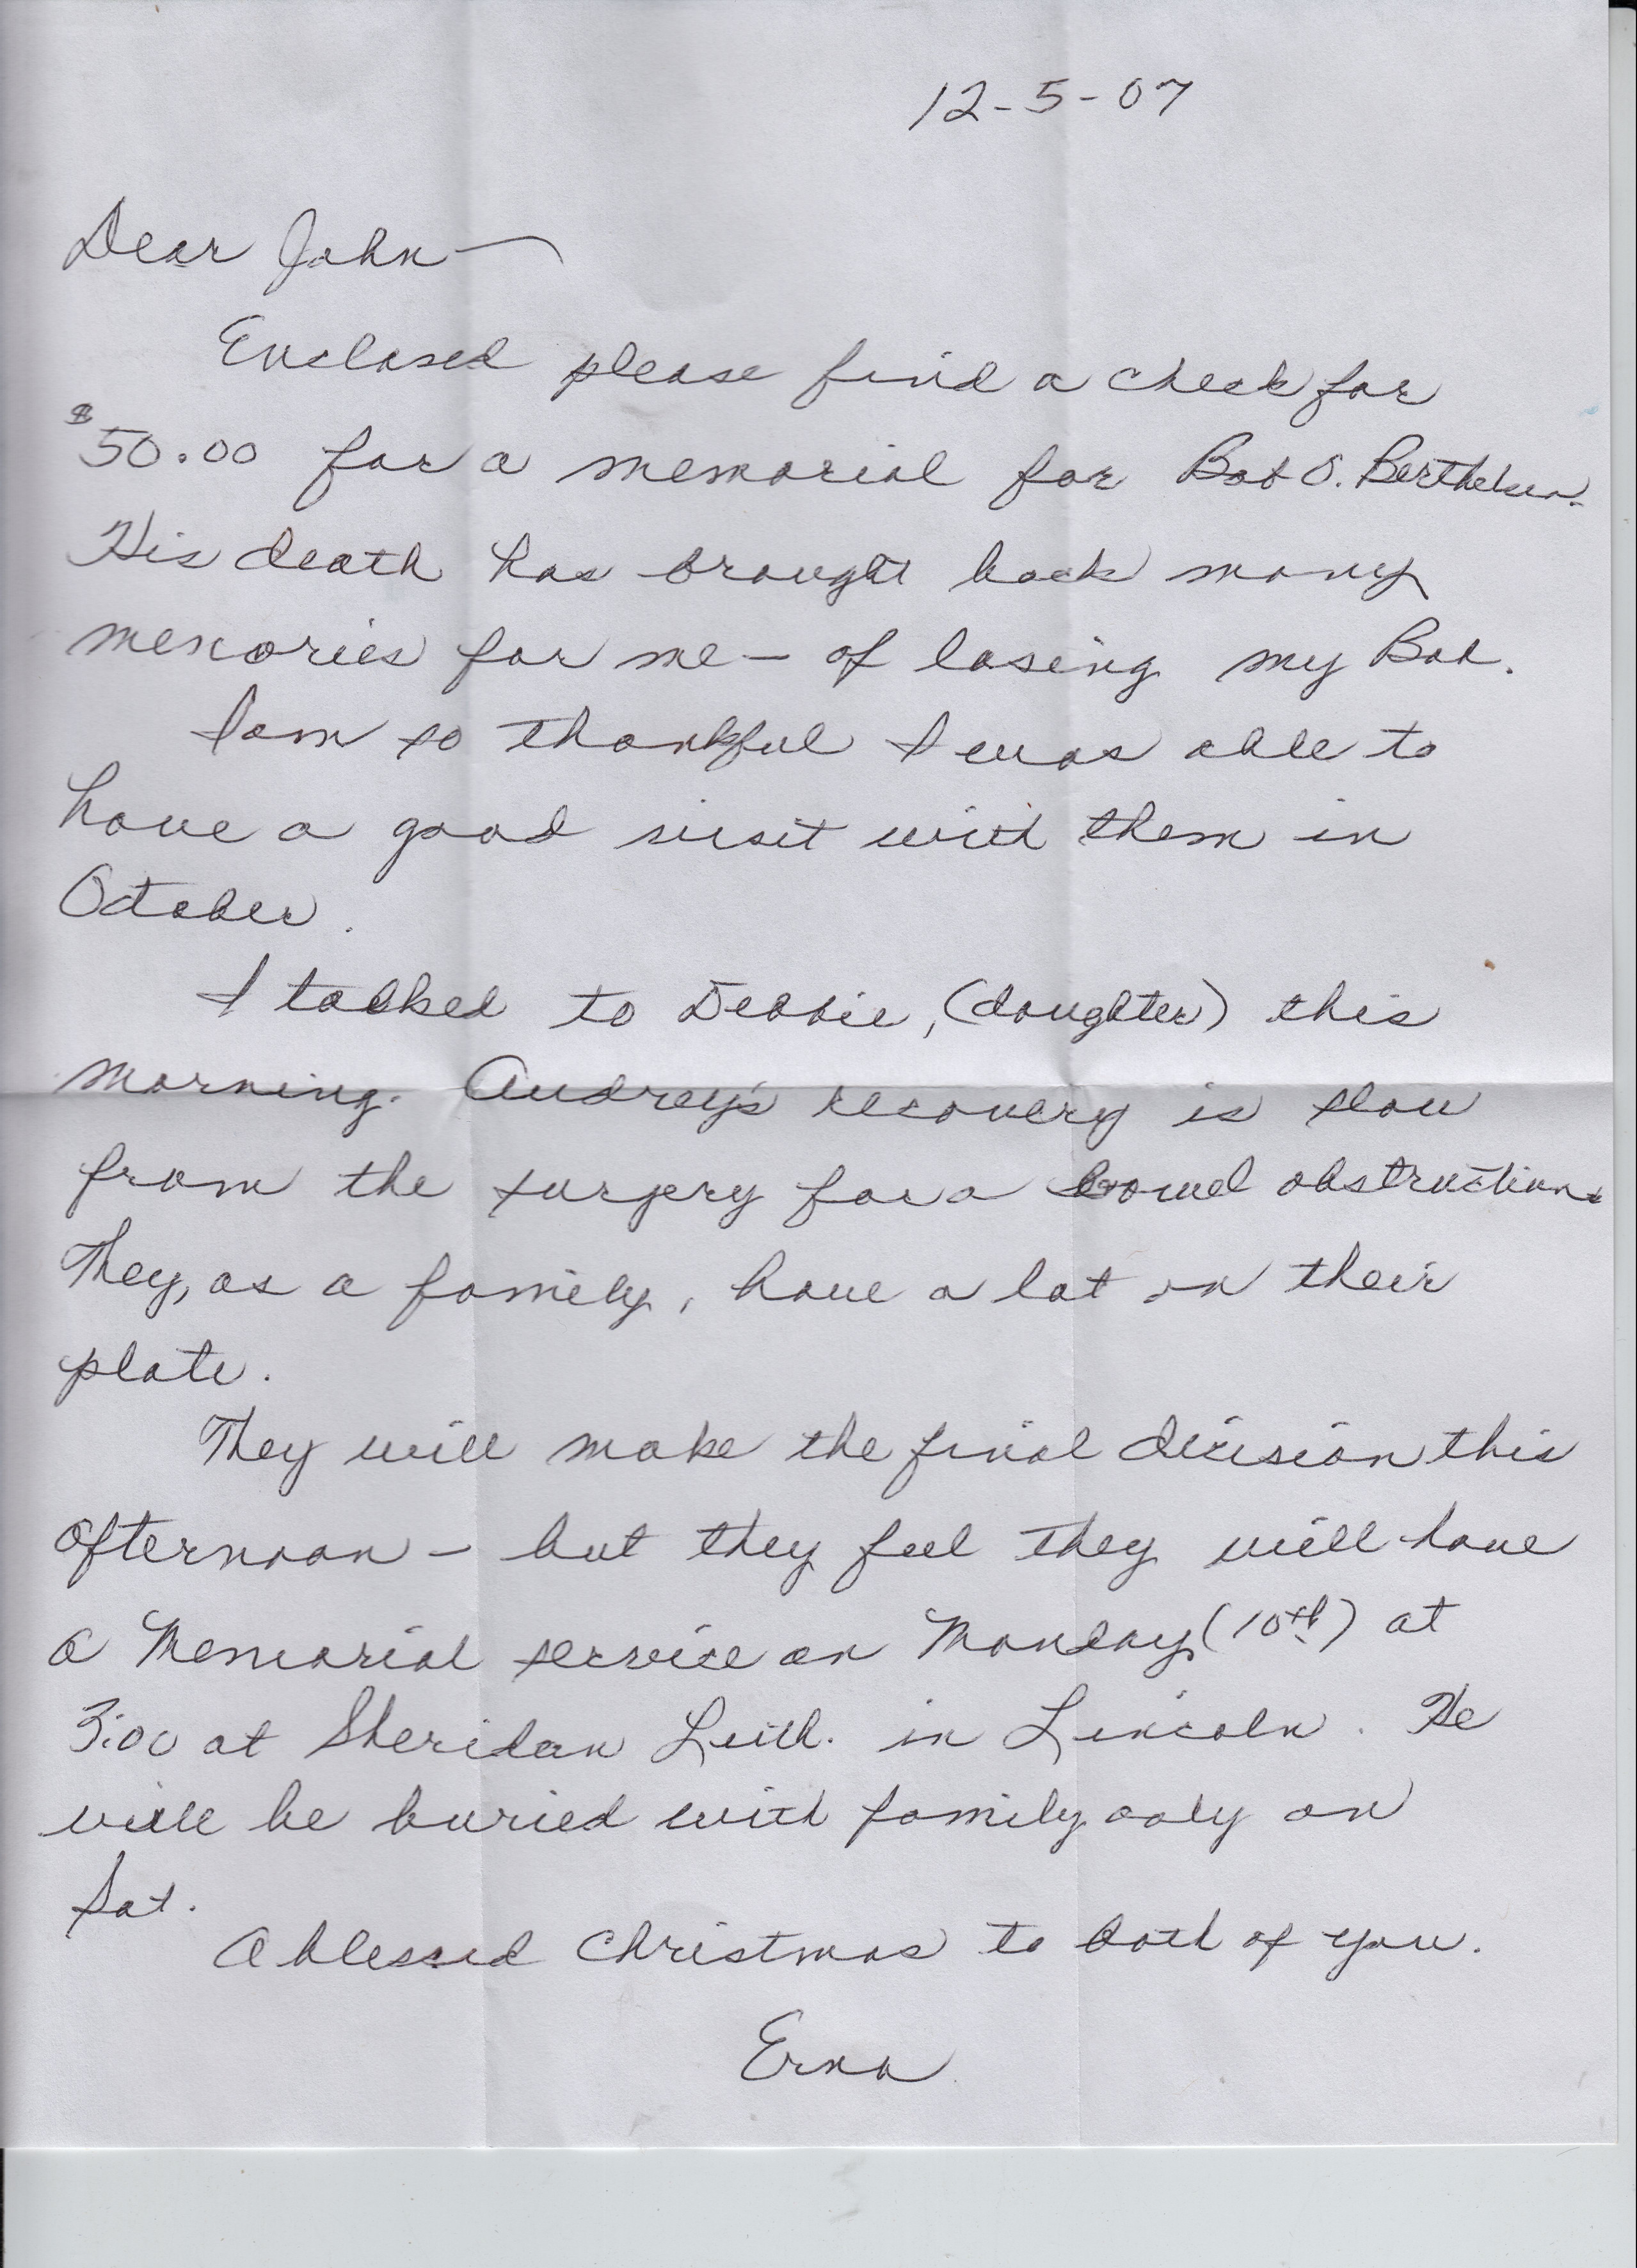 12-5-07
Dear John
Enclosed please find a check for
$50.00 for a memorial for Bob O. Berthelsen.
His death has brought back many
memories for me - of losing my Bob.
I am so thankful I was able to
have a good visit with them in
October.
I talked to Debbie, (daughter) this
morning. Audrey's recovery is slow
from the surgery for a bowel obstruction.
They, as a family, have a lot on their
plate.
They will make the final decision this
afternoon - but they feel they will have
a Memorial service on Monday, (10th) at
3:00 at Sheridan Luth. in Lincoln. He
will be buried with family only on
Sat.
A blessed Christmas to both of you.
Erna